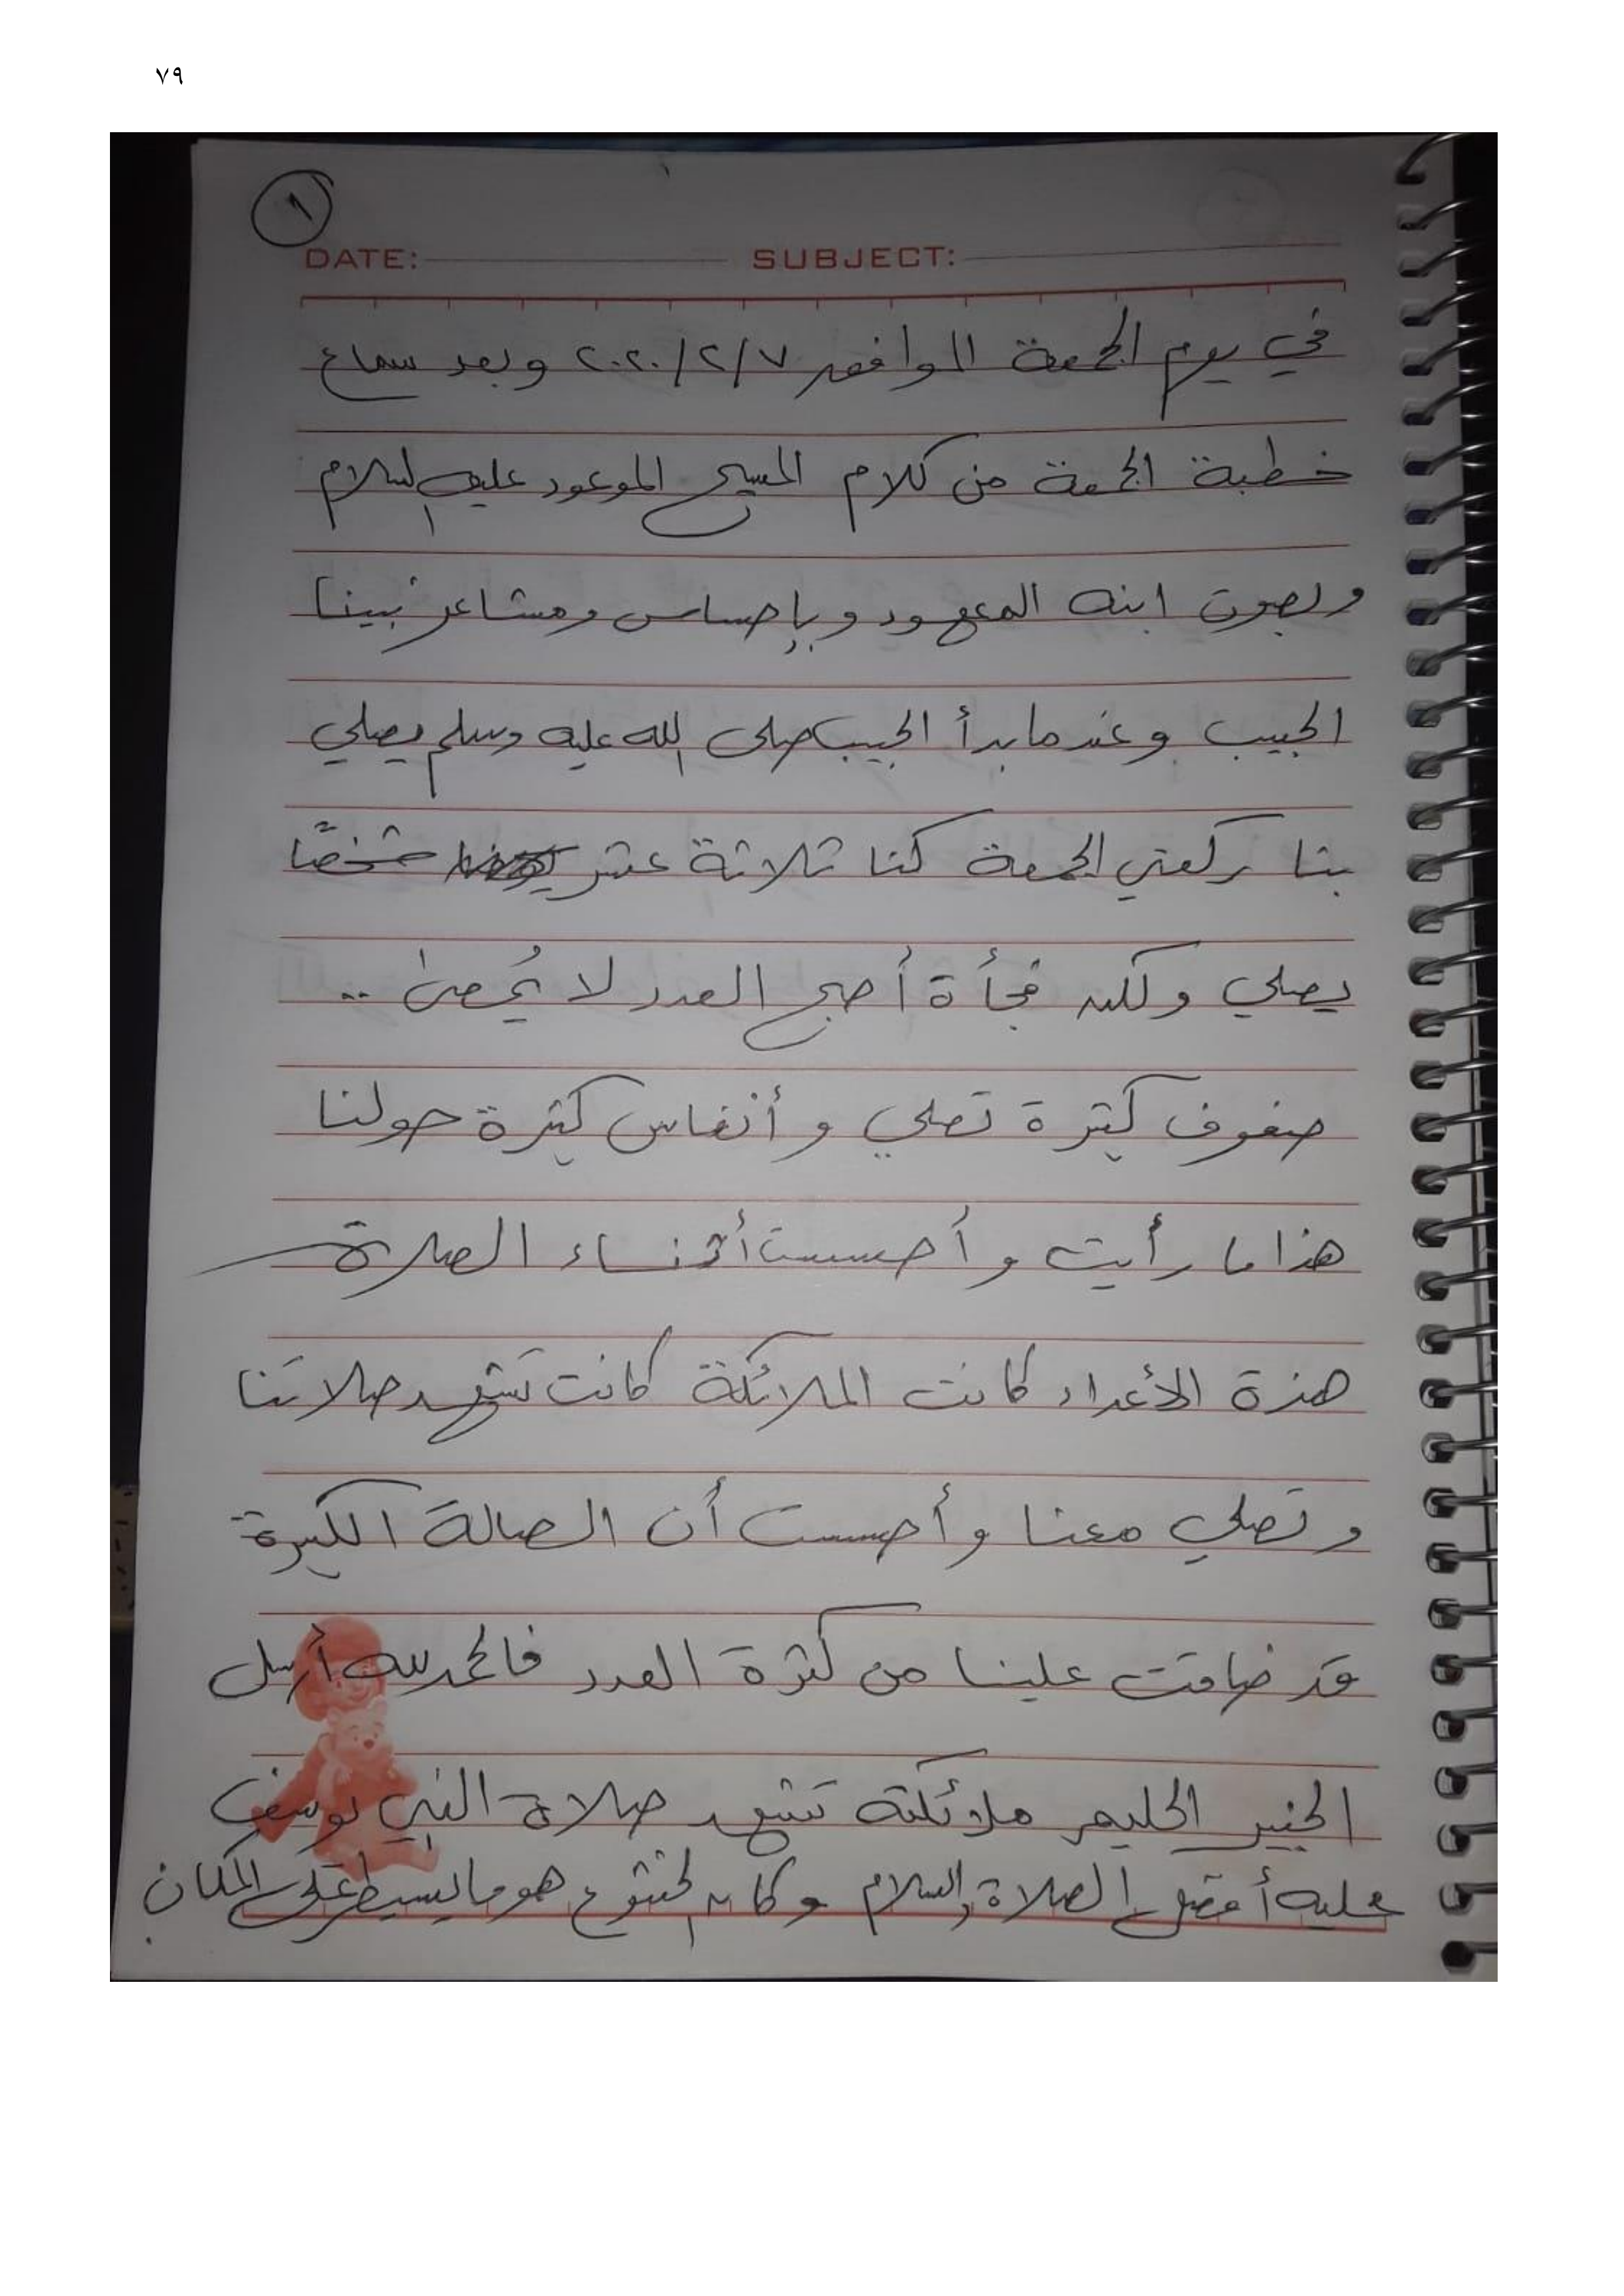 ٧٩
١
DATE: SUBJECT:
في يوم الجمعة الموافق ٢٠٢٠/٢/٧ وبعد سماع
خطبة الجمعة من كلام المسيح الموعود عليه السلام
وبصوت ابنه المعهود وبإحساس ومشاعر نبينا
الحبيب وعندما بدأ الحبيب صلى الله عليه وسلم يصلي
بنا ركعتي الجمعة كنا ثلاثة عشر شخصًا
يصلي ولكن فجأة أصبح العدد لا يُحصى ..
صفوف كثيرة تصلي وأنفاس كثيرة حولنا
هذا ما رأيت وأحسست أثناء الصلاة
هذة الأعداد كانت الملائكة كانت تشهد صلاتنا
وتصلي معنا وأحسست أن الصالة الكبيرة
قد ضاقت علينا من كثرة العدد فالحمد لله أرسل
الخبير الحليم ملائكته تشهد صلاة النبي يوسف
عليه أفضل الصلاة والسلام وكان الخشوع هو ما يسيطر على المكان